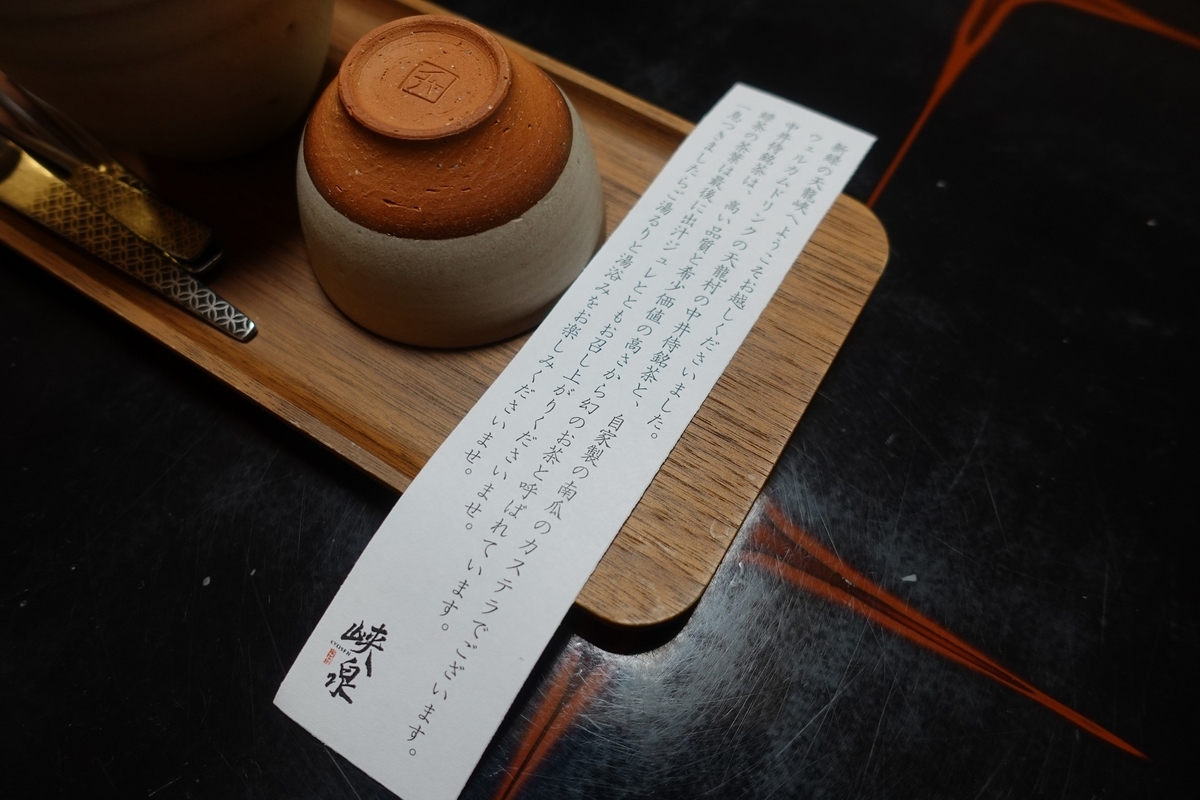 新緑の天龍峡へようこそお越しくださいました。
ウェルカムドリンクの天龍村の中井侍銘茶と、自家製の南瓜のカステラでございます。
中井侍銘茶は、高い品質と希少価値の高さから幻のお茶と呼ばれています。
緑茶の茶葉は最後に出汁ジュレとともお召し上がりくださいませ。
一息つきましたらご湯るりと湯浴みをお楽しみくださいませ。
峡泉